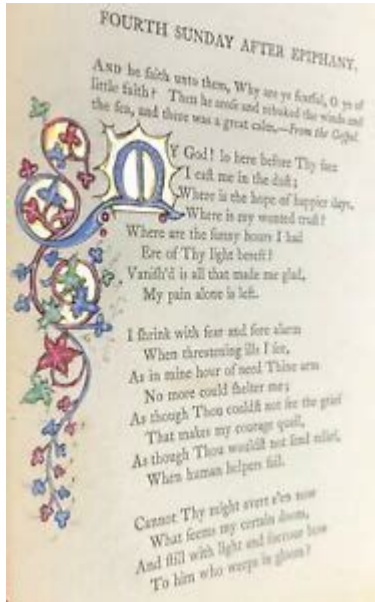 FOURTH SUNDAY AFTER EPIPHANY.
AND he ſaith unto them, Why are ye fearful, O ye of
little faith? Then he aroſe and rebuked the winds and
the ſea, and there was a great calm.—From the Goſpel.
MY God! lo here before Thy face
I caſt me in the duſt;
Where is the hope of happier days,
Where is my wonted truſt?
Where are the ſunny hours I had
Ere of Thy light bereft?
Vaniſh'd is all that made me glad,
My pain alone is left.
I ſhrink with fear and ſore alarm
When threatening ills I ſee,
As in mine hour of need Thine arm
No more could ſhelter me;
As though Thou couldſt not ſee the grief
That makes my courage quail,
As though Thou wouldſt not ſend relief,
When human helpers fail.
Cannot Thy might avert e'en now
What ſeems my certain doom,
And ſtill with light and ſuccour bow
To him who weeps in gloom?